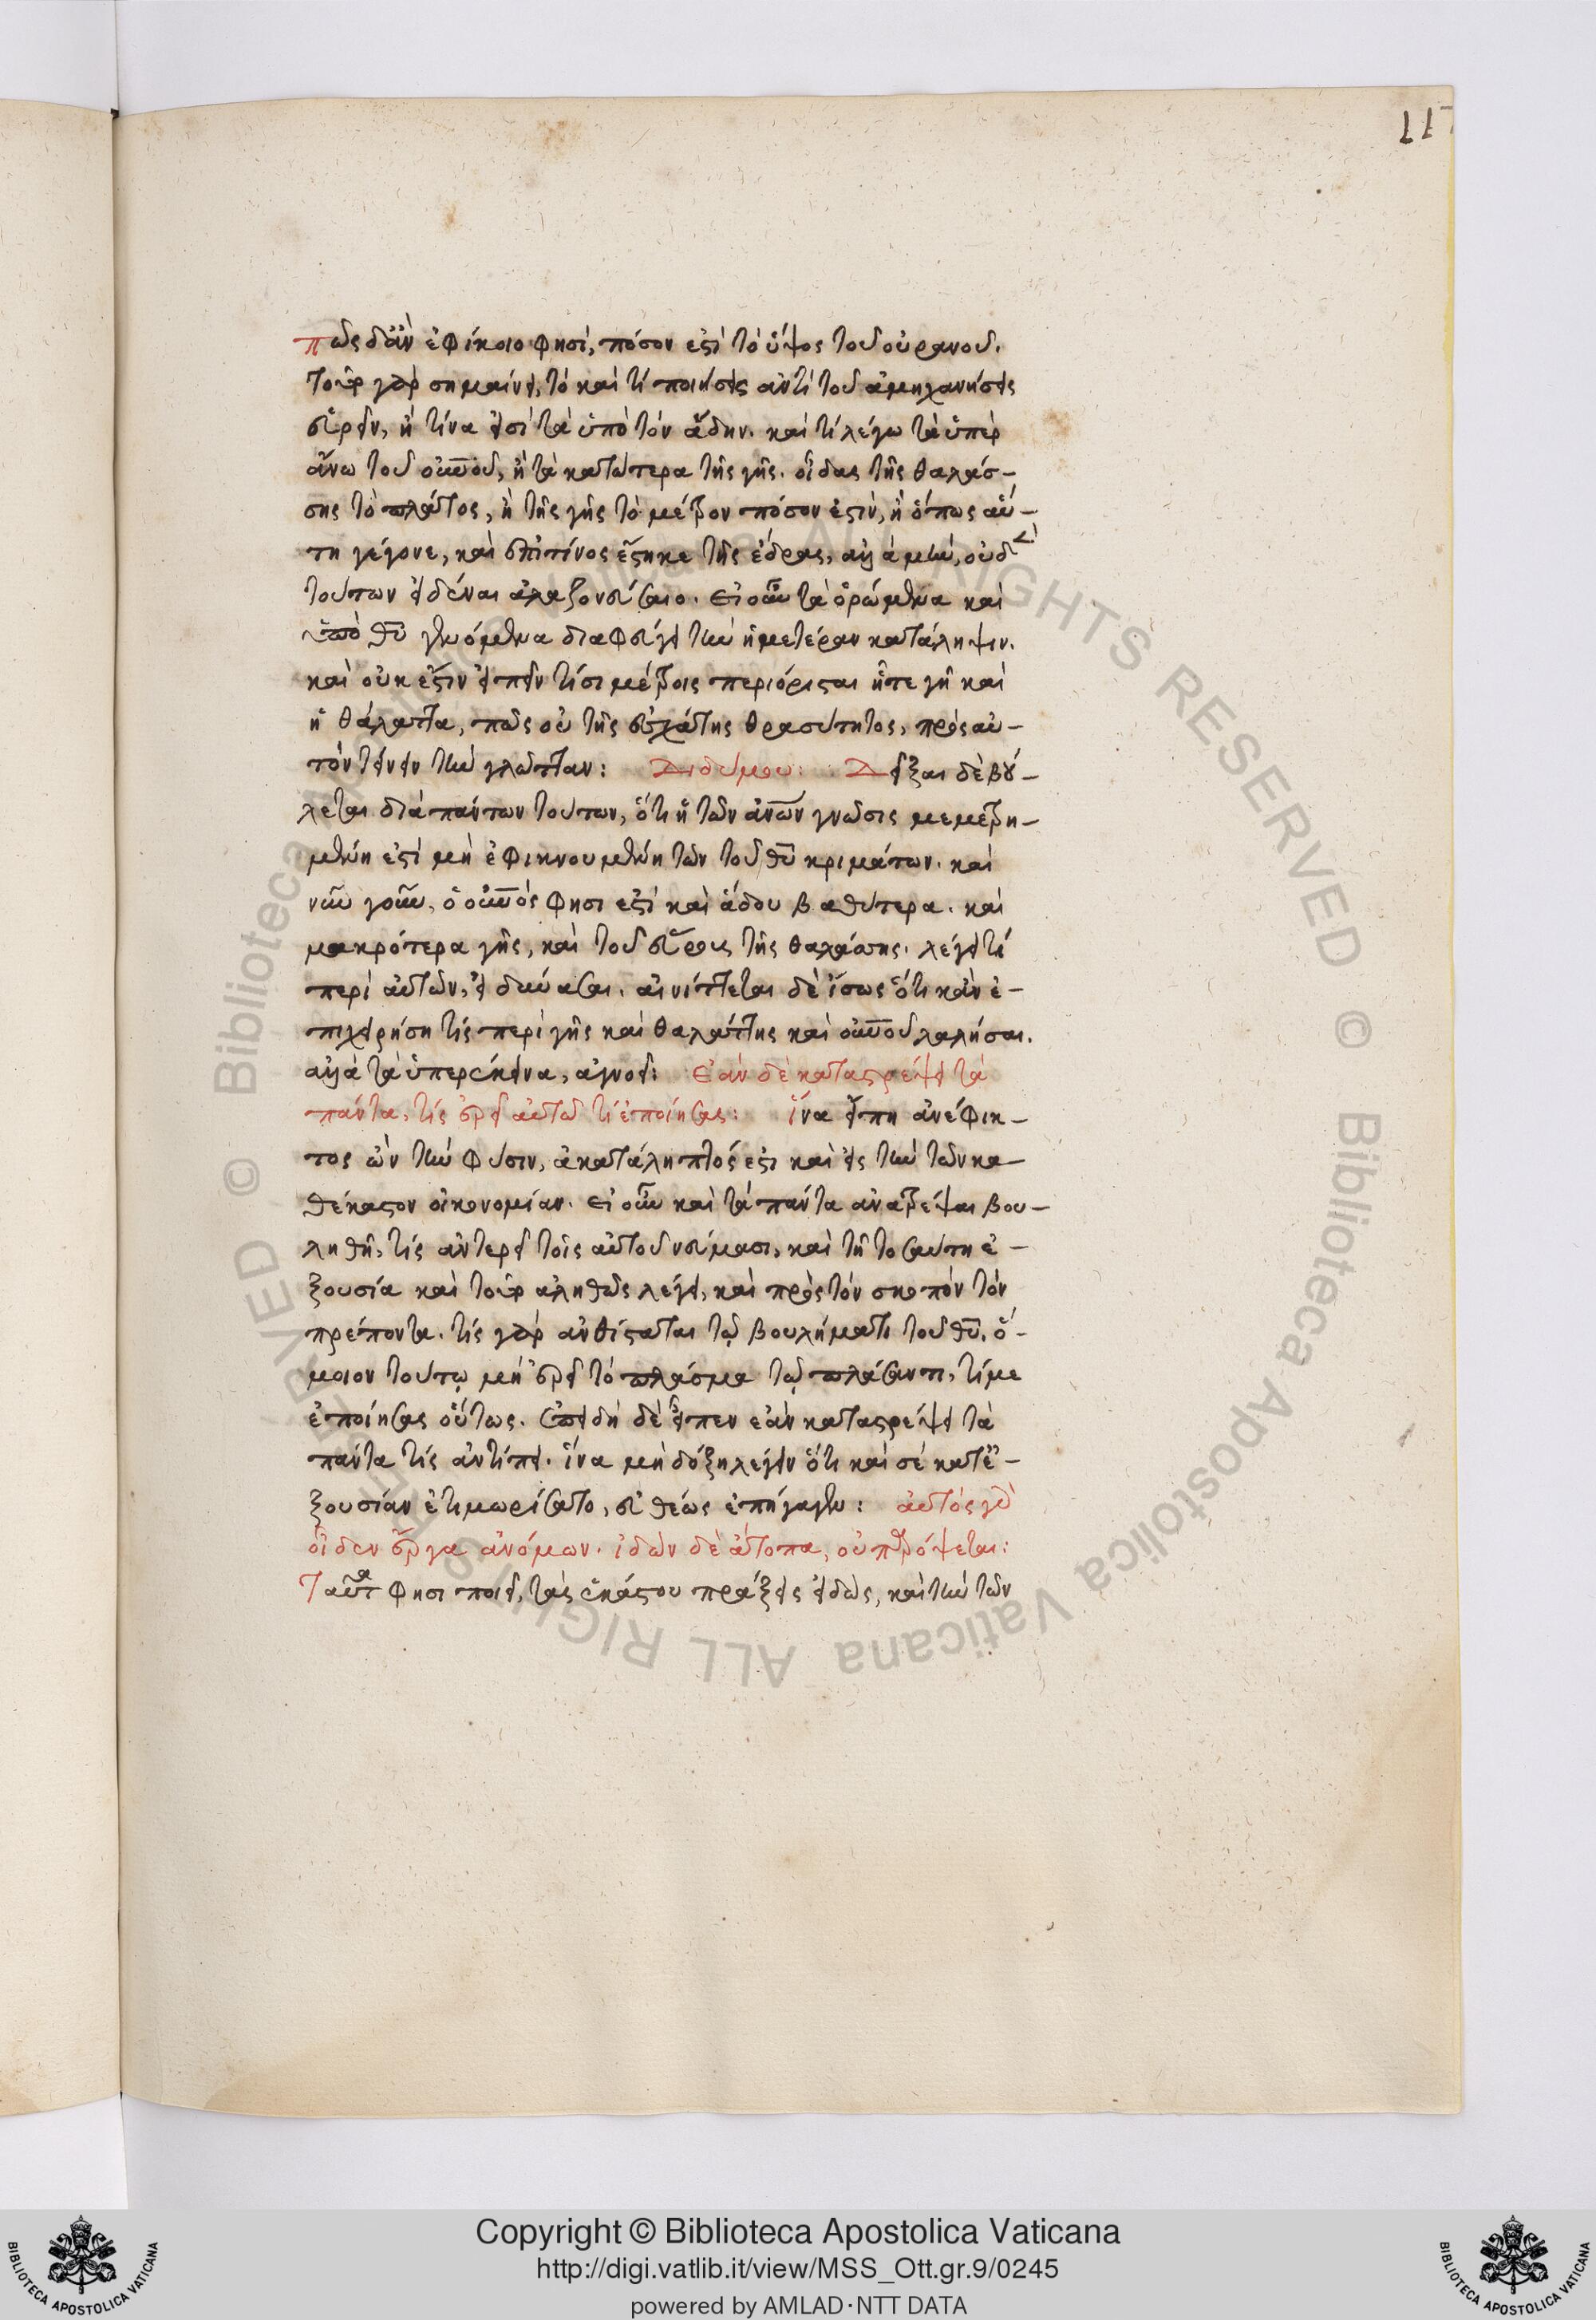 117
πῶς δ' ἂν ἐφίκοιο φησὶ, πόσον ἐστὶ τὸ ὕψος τοῦ οὐρανοῦ.
τοῦτο γὰρ σημαίνει, τὸ καὶ τί ποιήσεις ἀντὶ τοῦ ἀμηχανήσεις
εὑρεῖν, ἢ τίνα εἰσὶ τὰ ὑπὸ τὸν ἅδην. καὶ τί λέγω τὰ ὑπερ
άνω τοῦ οὐνοῦ, ἢ τὰ κατώτερα τῆς γῆς. οἶδας τῆς θαλάσ-
σης τὸ πλάτος, ἢ τῆς γῆς τὸ μέτρον πόσον ἐστὶν, ἢ ὅπως αὕ-
τη γέγονε, καὶ ἐπὶ τίνος ἕστηκε τῆς ἕδρας, ἀλλὰ μὴν, οὐδὲ
τούτων εἰδέναι ἀλαζονεύσαιο. εἰ οὖν τὰ ὁρώμενα καὶ
ὑπὸ θυ γενόμενα διαφεύγει τὴν ἡμετέραν κατάληψιν.
καὶ οὐκ ἔστιν εἰπεῖν τίσι μέτροις περιόρισται ἥτε γῆ καὶ
ἡ θάλαττα, πῶς οὐ τῆς ἐσχάτης θρασύτητος, πρὸς αὐ-
τὸν τείνειν τὴν γλῶτταν: Διδύμου: Δεῖξαι δὲ βού-
λεται διὰ πάντων τούτων, ὅτι ἡ τῶν ἀνων γνῶσις μεμετρη-
μένη ἐστὶ μὴ ἐφικνουμένη τῶν τοῦ θυ κριμάτων. καὶ
νῦν γοῦν, ὁ οὐνός φησι ἐστὶ καὶ ἅδου βαθύτερα. καὶ
μακρότερα γῆς, καὶ τοῦ εὔρους τῆς θαλάσσης. λέγει τί
περὶ αὐτῶν, εἰ δύνασαι. αἰνίττεται δὲ ἴσως ὅτι κἂν ἐ-
πιχειρήσῃ τίς περὶ γῆς καὶ θαλάττης καὶ οὐνοῦ λαλῆσαι.
ἀλλὰ τὰ ὑπερέκεινα, ἀγνοεῖ: ἐὰν δὲ καταστρέψει τὰ
πάντα, τίς ἐρεῖ αὐτῶ τί ἐποίησας: ἵνα εἴπη ἀνέφικ-
τος ὢν τὴν φύσιν, ἀκατάληπτός ἐστι καὶ εἰς τὴν τῶν κα-
θέκαστον οἰκονομίαν. εἰ οὖν καὶ τὰ πάντα ἀνατρέψαι βου-
ληθῆ, τίς ἀντερεῖ τοῖς αὐτοῦ νεύμασι, καὶ τῆ τοσαύτη ἐ-
ξουσία καὶ τοῦτο ἀληθῶς λέγει, καὶ πρὸς τὸν σκοπὸν τὸν
πρέποντα. τίς γὰρ ἀνθίσταται τῷ βουλήματι τοῦ θυ, ὅ-
μοιον τούτῳ μὴ ἐρεῖ τὸ πλάσμα τῷ πλάσαντι, τί με
ἐποίησας οὕτως. ἐπειδὴ δὲ εἶπεν ἐὰν καταστρέψει τὰ
πάντα τίς ἀντείποι. ἵνα μὴ δόξη λέγειν ὅτι καὶ σὲ κατ' ἐ-
ξουσίαν ἐτιμωρήσατο, εὐθέως ἐπήγαγεν: αὐτὸς γὰρ
οἶδεν ἔργα ἀνόμων. ἰδὼν δὲ ἄτοπα, οὐ παρόψεται:
Ταῦτα φησι ποιεῖ, τὰς ἑκάστου πράξεις εἰδὼς, καὶ τὴν τῶν
Copyright © Biblioteca Apostolica Vaticana
http://digi.vatlib.it/view/MSS_Ott.gr.9/0245
powered by AMLAD·NTT DATA